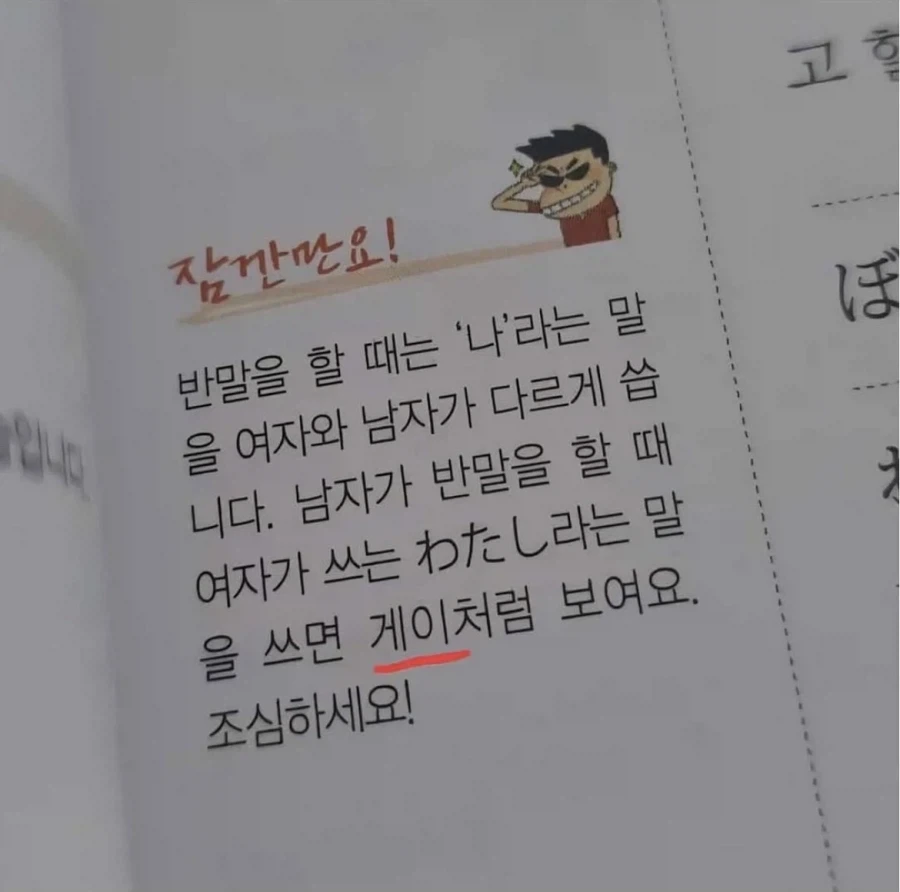 잠깐만요!
반말을 할 때는 ‘나’라는 말
을 여자와 남자가 다르게 씁
니다. 남자가 반말을 할 때
여자가 쓰는 わたし라는 말
을 쓰면 게이처럼 보여요.
조심하세요!
입니다.
고
ぼ